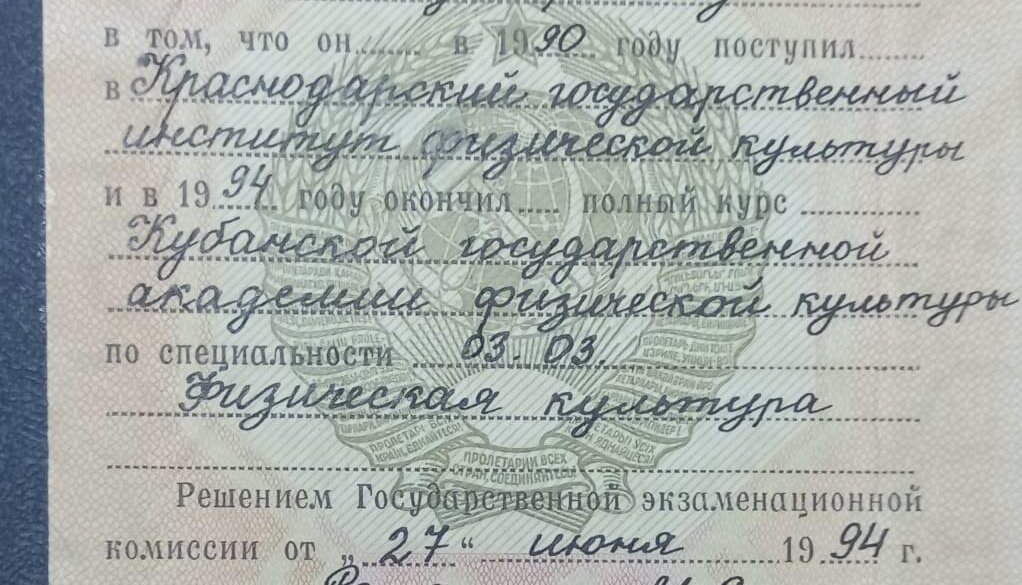 в том, что он...... в 1990 году поступил......
в Краснодарский государственный
институт физической культуры
и в 1994 году окончил..... полный курс
Кубанской государственной
академии физической культуры
по специальности 03.03.
Физическая культура
ПРОЛЕТАРИИ ВСЕХ
СТРАН, СОЕДИНЯЙТЕСЬ!
Решением Государственной экзаменационной
комиссии от „27“ июня 1994 г.